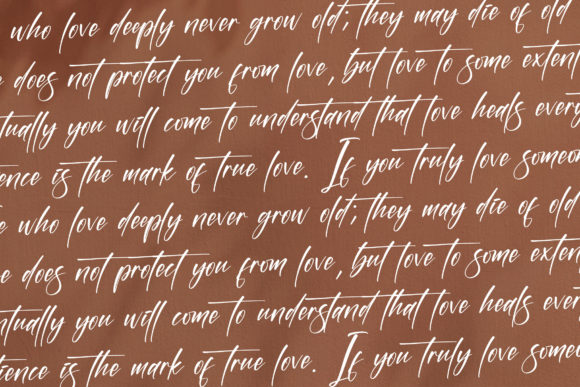 who love deeply never grow old; they may die of old
e does not protect you from love, but love to some extent
tually you will come to understand that love heals every
ience is the mark of true love. If you truly love someo
e who love deeply never grow old; they may die of old
e does not protect you from love, but love to some exten
ntually you will come to understand that love heals ever
tience is the mark of true love. If you truly love someo